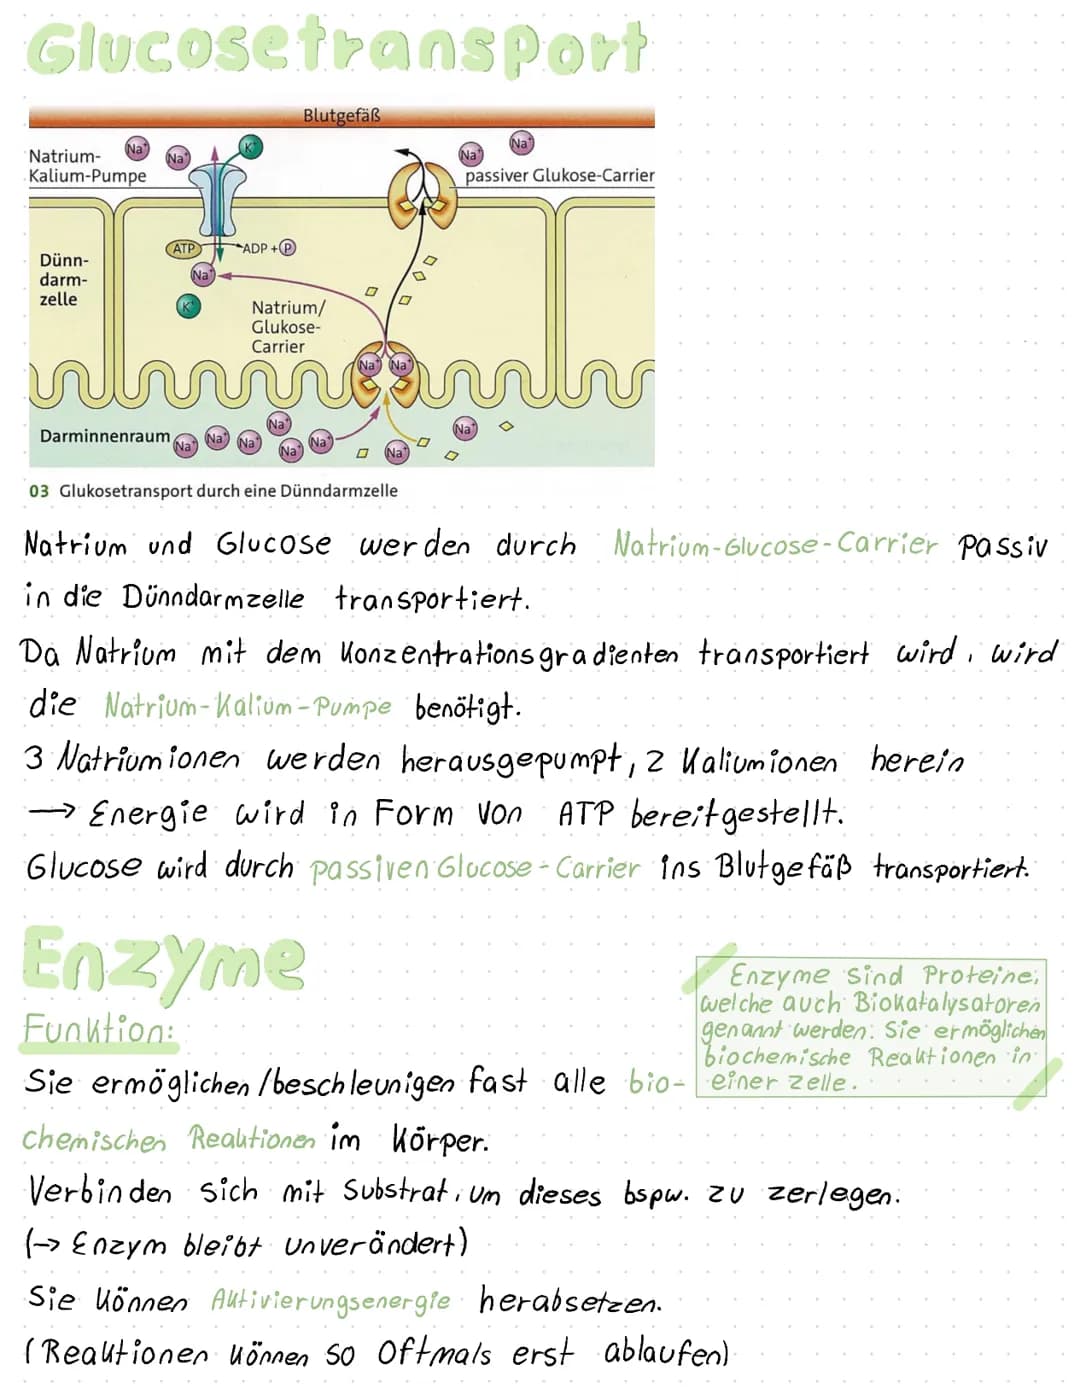 Glucosetransport
Blutgefäß
Natrium-
Kalium-Pumpe
Na⁺
Na⁺
K⁺
Na⁺
Na⁺
passiver Glukose-Carrier
ATP
ADP + P
Dünn-
darm-
zelle
Na⁺
K⁺
Natrium/
Glukose-
Carrier
Na⁺ Na⁺
Darminnenraum
Na⁺ Na⁺ Na⁺ Na⁺ Na⁺ Na⁺ Na⁺ Na⁺
03 Glukosetransport durch eine Dünndarmzelle
Natrium und Glucose werden durch Natrium-Glucose-Carrier passiv
in die Dünndarmzelle transportiert.
Da Natrium mit dem Konzentrationsgradienten transportiert wird, wird
die Natrium-Kalium-Pumpe benötigt.
3 Natriumionen werden herausgepumpt, 2 Kaliumionen herein
→ Energie wird in Form von ATP bereitgestellt.
Glucose wird durch passiven Glucose-Carrier ins Blutgefäß transportiert.
Enzyme
Enzyme sind Proteine,
welche auch Biokatalysatoren
genannt werden. Sie ermöglichen
biochemische Reaktionen in
einer Zelle.
Funktion:
Sie ermöglichen/beschleunigen fast alle bio-
chemischen Reaktionen im Körper.
Verbinden sich mit Substrat, um dieses bspw. zu zerlegen.
(→ Enzym bleibt unverändert)
Sie können Aktivierungsenergie herabsetzen.
(Reaktionen können so oftmals erst ablaufen)